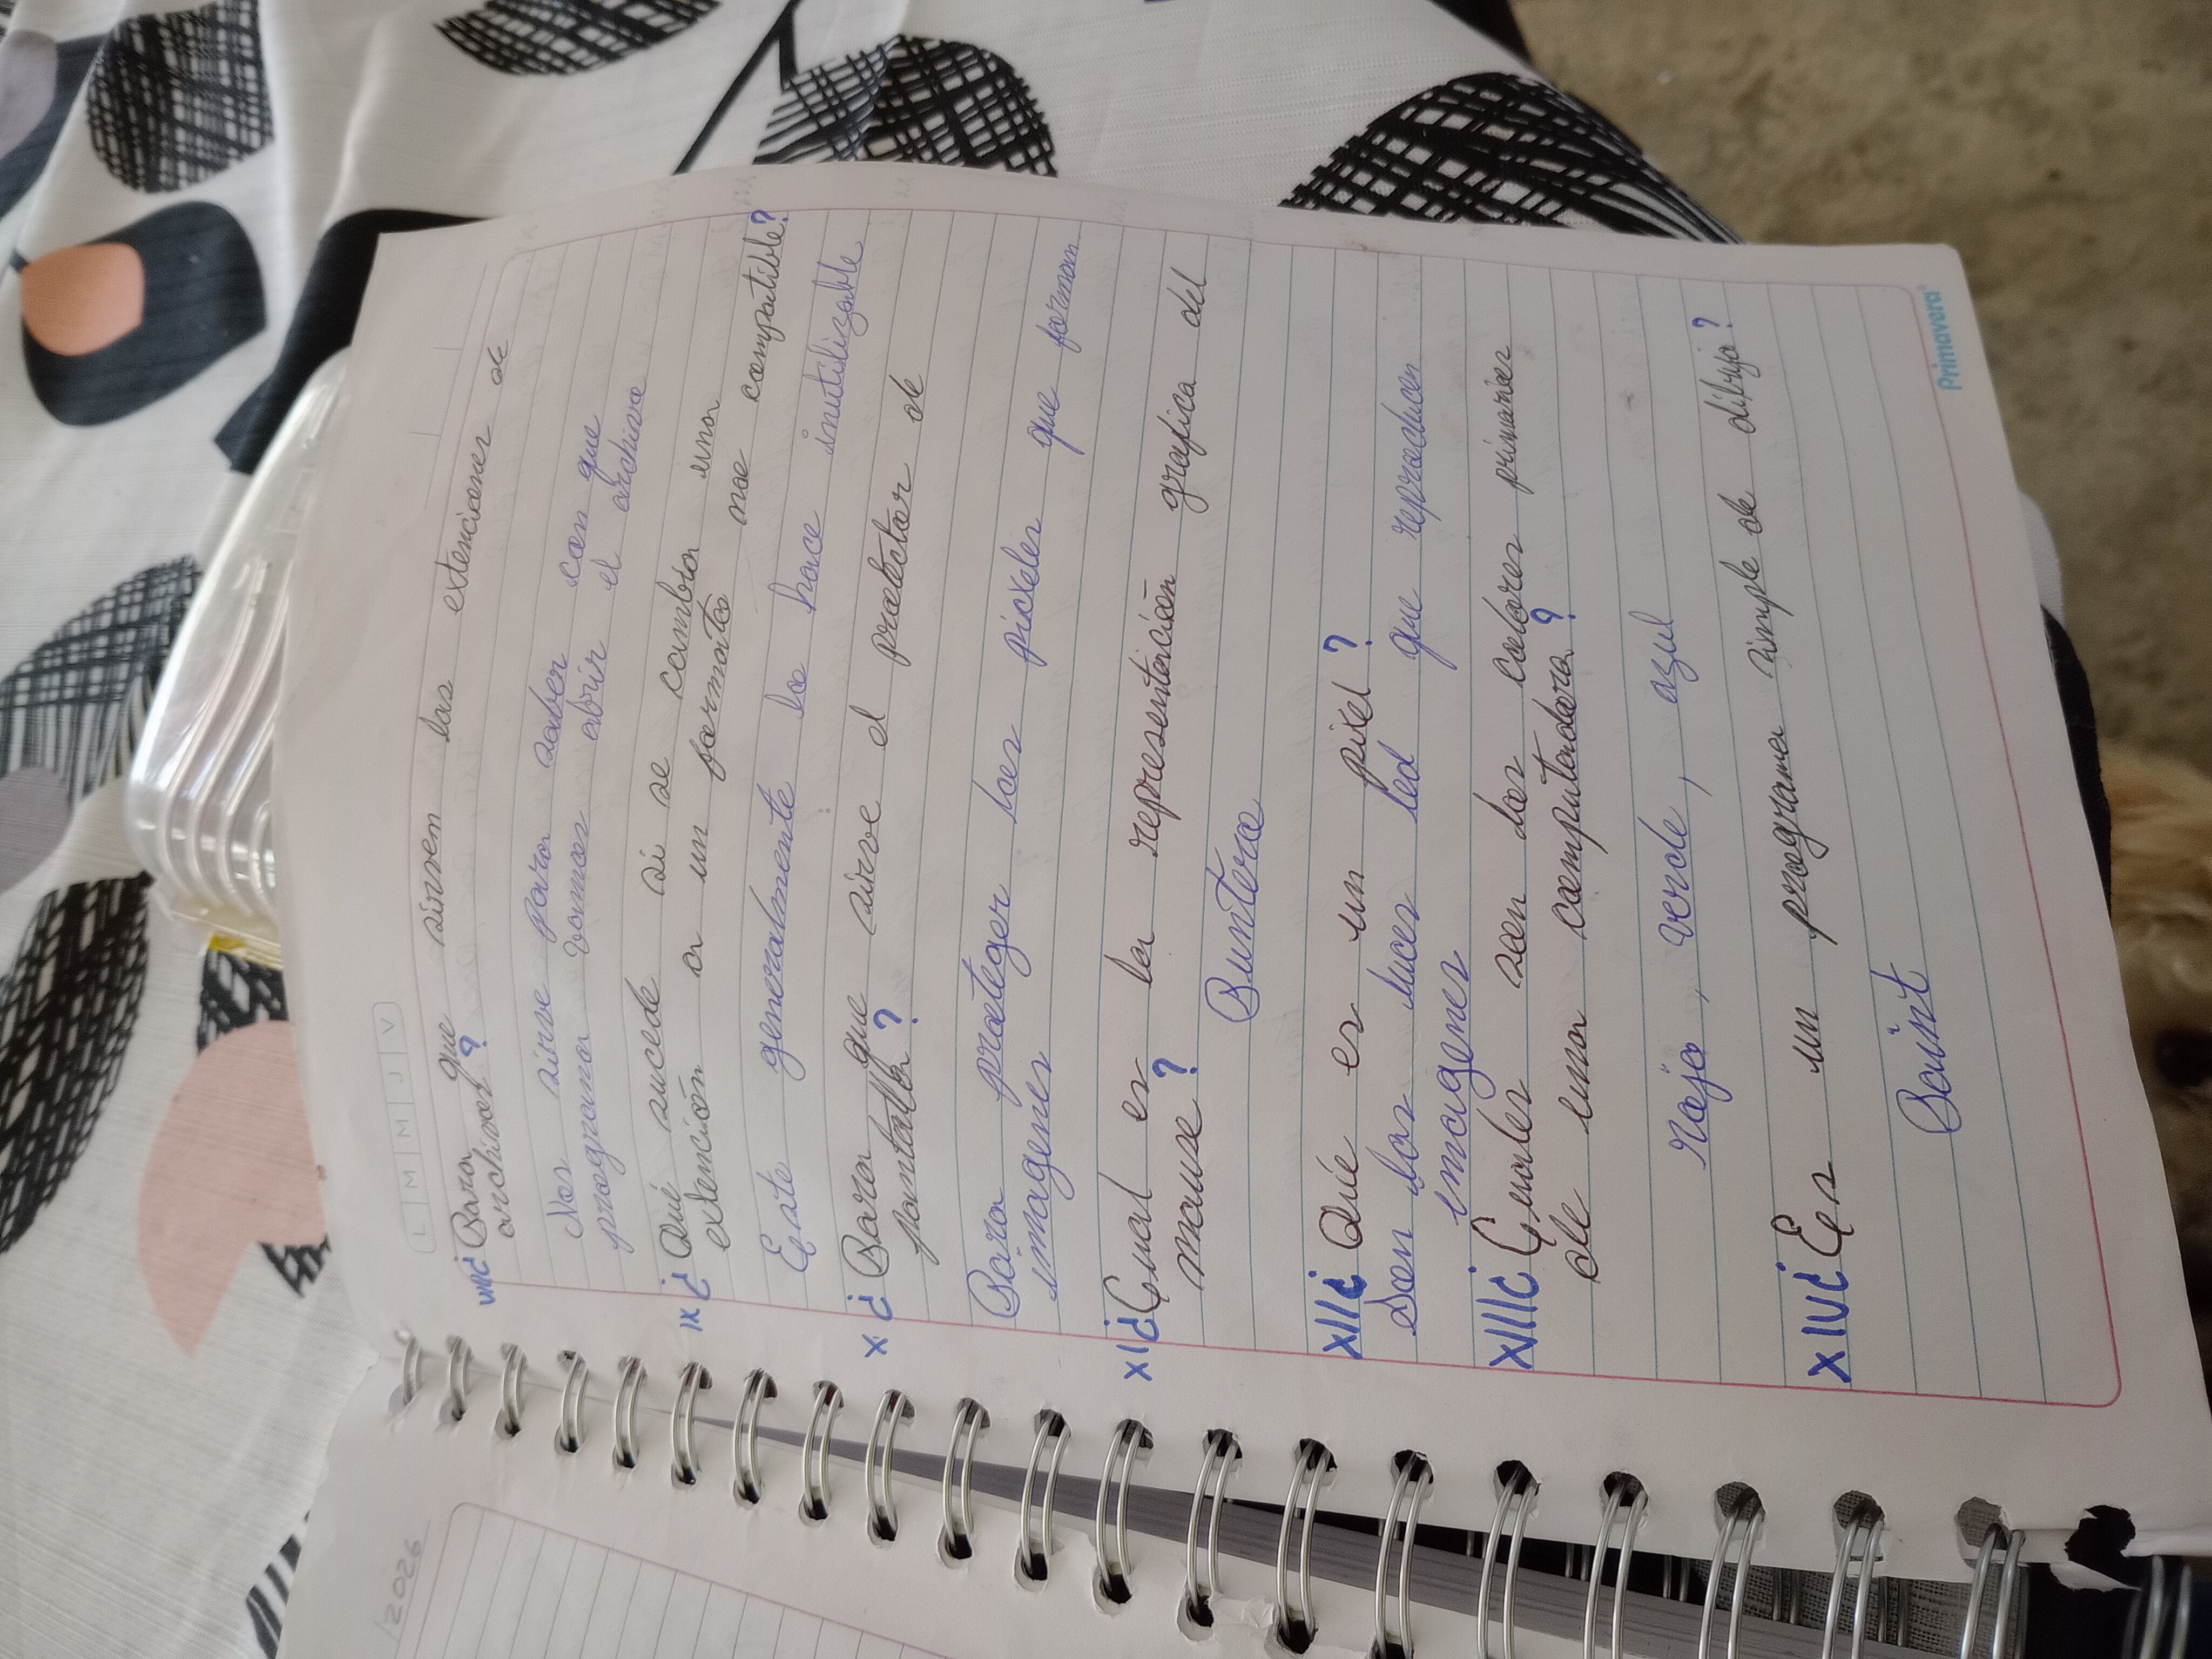 L M M J V
VIII¿ Para que sirven las extenciones de
archivos?
Nos sirve para saber con que
programa vamos abrir el archivo
IX ¿ Qué sucede si se cambia una
extención a un formato no compatible?
Este generalmente lo hace inutilizable
X ¿ Para que sirve el protector de
pantalla?
Para proteger los pixeles que forman
imagenes
XI¿ Cual es la representación grafica del
mouse?
Puntero
XII¿ Qué es un pixel?
Son las luces led que reproducen
imagenes
XIII¿ Cuales son los colores primarios
de una computadora?
rojo, verde, azul
XIV¿ Es un programa simple de dibujo?
Paint
Primavera
/2026